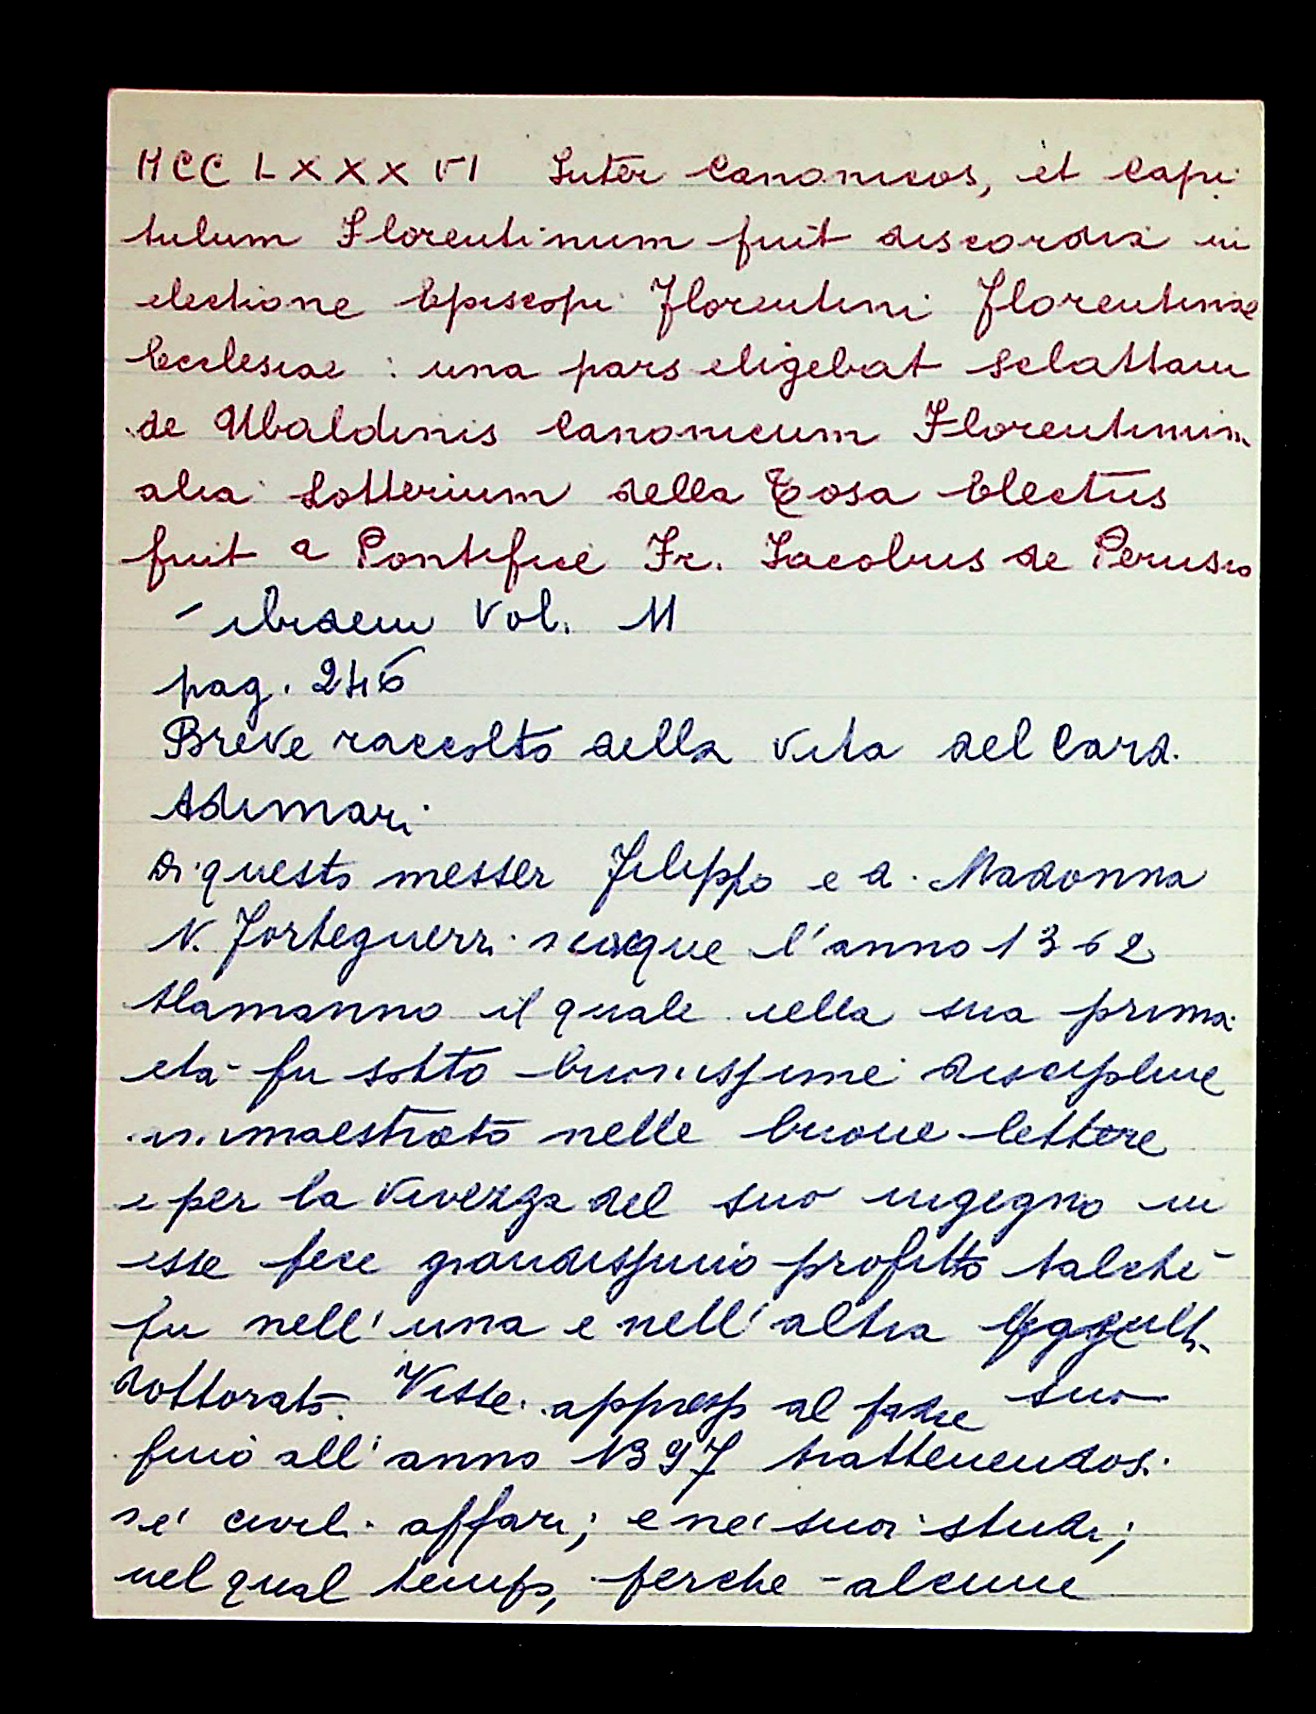 MCCLXXXVI Inter Canonicos, et Capi
tulum Florentinum fuit discordia in
electione Episcopi Florentini Florentinae
Ecclesiae : una pars eligebat Sclattam
de Ubaldinis Canonicum Florentinum
alia Lotterium della Tosa Electus
fuit a Pontifice Fr. Jacobus de Perusio
- ibidem Vol. M
pag. 246
Breve raccolto della vita del Card.
Adimari
Di questo messer Filippo e d. Madonna
N. Forteguerri nacque l'anno 1362
Alamanno il quale nella sua prima
età fu sotto buonissime discipline
ammaestrato nelle buone lettere
e per la vivezza del suo ingegno in
esse fece grandissimo profitto talchè
fu nell'una e nell'altra
dottorato. Visse appresso al padre suo
finò all'anno 1397 trattenendosi
ne' civili affari; e ne' suoi studi;
nel qual tempo, perche alcune